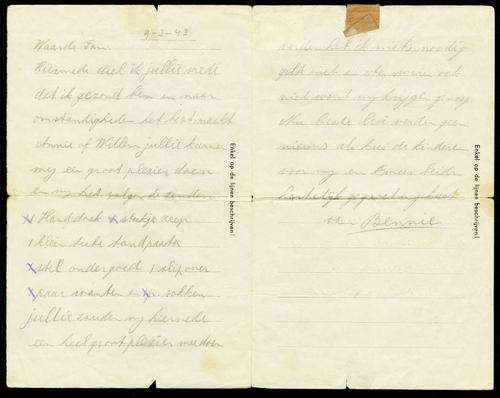 9-3-43
Waarde Fam.
Hiermede deel ik jullie mede
dat ik gezond ben en naar
omstandigheden het best maakt
Annie of Willem jullie kunnen
mij een groot plezier doen
en mij het volgende zenden
1 Handdoek x stukje zeep
1 klein tube tandpasta
x stel ondergoed 1 slipover
x paar wanten en x p sokken
jullie zouden mij hiermede
een heel groot plezier mee doen
Enkel op de lijnen beschrijven!
verder heb ik niets noodig
geld niet en eten ook
niet want wij krijgen genoeg
Nu beste lui verder geen
nieuws als kus de kinderen
voor mij en beide
hartelijk gegroet
van Bennie
Enkel op de lijnen beschrijven!